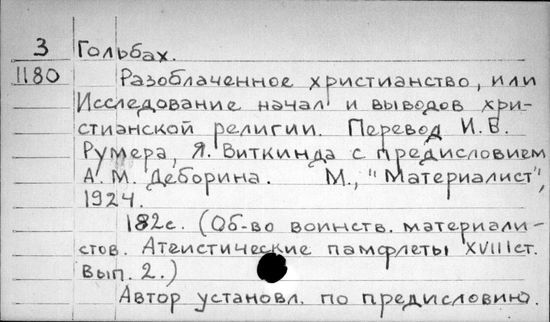 З Гольбах.
1180 Разоблаченное христианство, или
Исследование начал и выводов хри-
стианской религии. Перевод И.Б.
Румера, Я. Виткинда с предисловием
А. М. Деборина. М., "Материалист",
1924.
182с. (Об-во воинств. материали-
стов. Атеистические памфлеты XVIII ст.
Вып. 2.)
Автор установл. по предисловию.